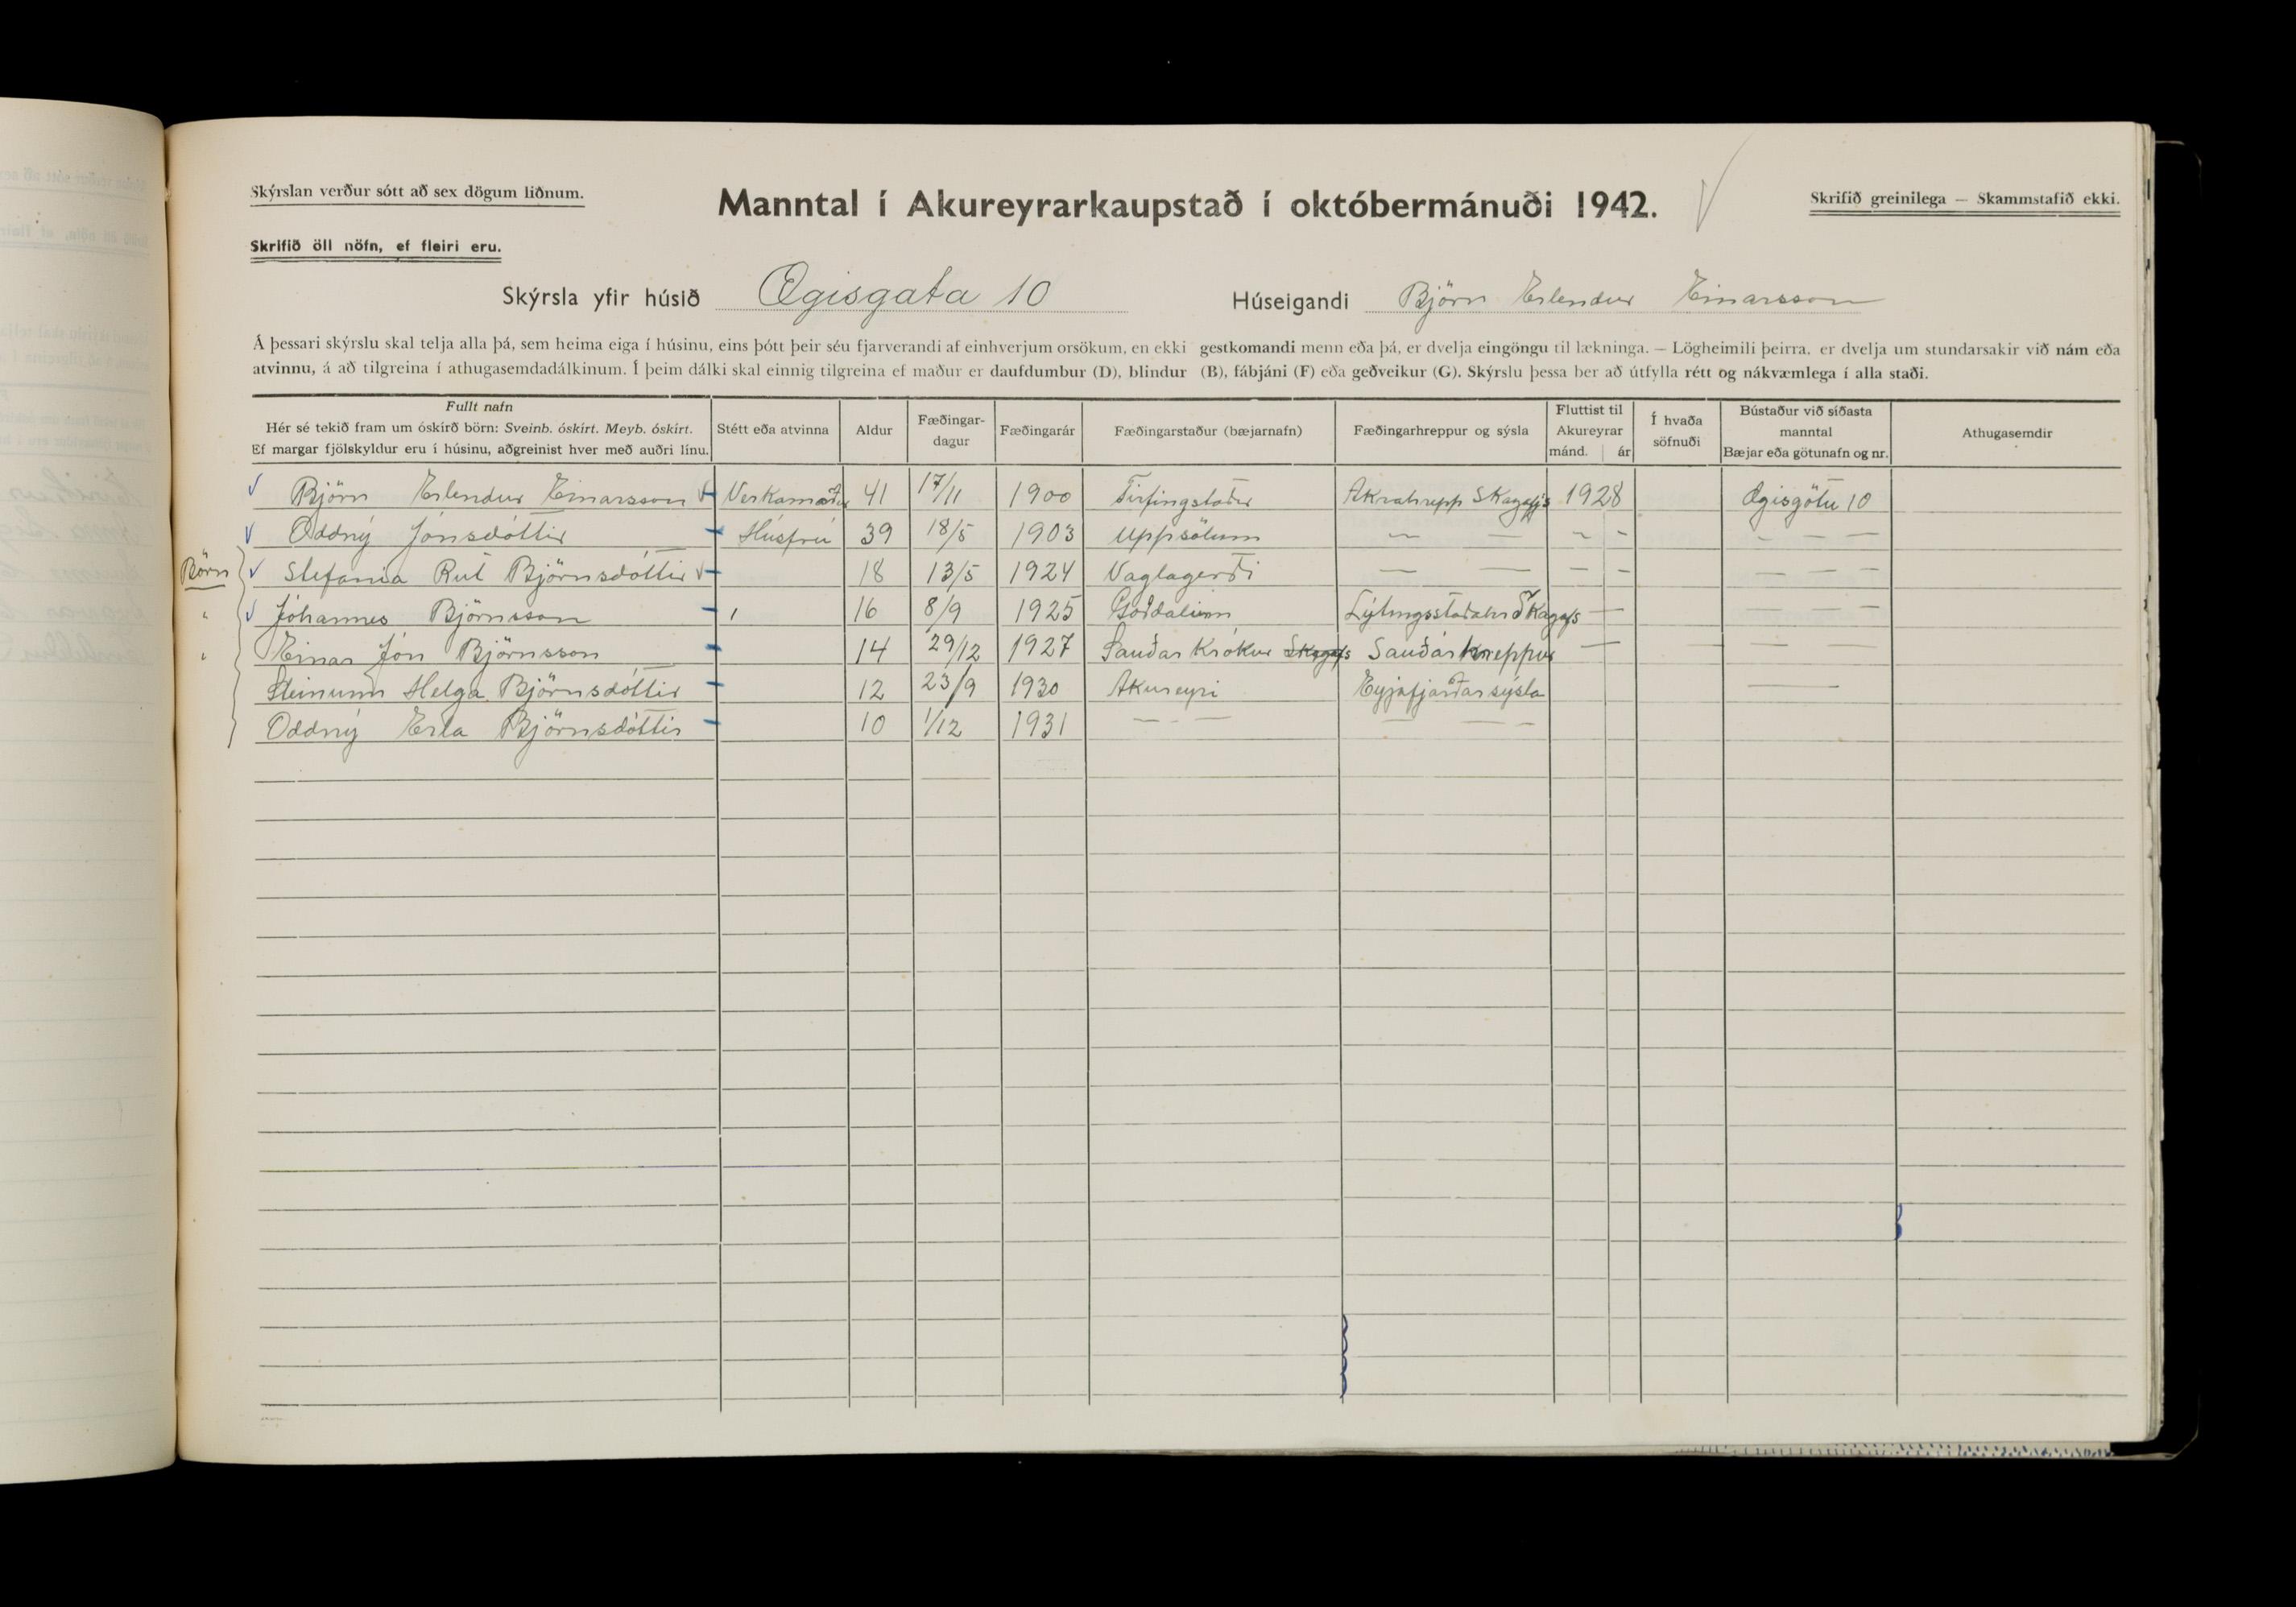 Skýrslan verður sótt að sex dögum liðnum.
Manntal í Akureyrarkaupstað í októbermánuði 1942.
Skrifið greinilega — Skammstafið ekki.
Skrifið öll nöfn, ef fleiri eru.
Skýrsla yfir húsið Ægisgata 10 Húseigandi Björn Erlendur Einarsson
Á þessari skýrslu skal telja alla þá, sem heima eiga í húsinu, eins þótt þeir séu fjarverandi af einhverjum orsökum, en ekki gestkomandi menn eða þá, er dvelja eingöngu til lækninga. — Lögheimili þeirra, er dvelja um stundarsakir við nám eða
atvinnu, á að tilgreina í athugasemdadálkinum. Í þeim dálki skal einnig tilgreina ef maður er daufdumbur (D), blindur (B), fábjáni (F) eða geðveikur (G). Skýrslu þessa ber að útfylla rétt og nákvæmlega í alla staði.
Fullt nafn
Hér sé tekið fram um óskírð börn: Sveinb. óskírt. Meyb. óskírt.
Ef margar fjölskyldur eru í húsinu, aðgreinist hver með auðri línu.
Stétt eða atvinna
Aldur
Fæðingar-
dagur
Fæðingarár
Fæðingarstaður (bæjarnafn)
Fæðingarhreppur og sýsla
Fluttist til
Akureyrar
mánd. ár
Í hvaða
söfnuði
Bústaður við síðasta
manntal
Bæjar eða götunafn og nr.
Athugasemdir
Björn Erlendur Einarsson Verkamaður 41 17/11 1900 Tirfingstaðir Akrahrepp Skagafjs 1928 Ægisgötu 10
Oddný Jónsdóttir Húsfrú 39 18/5 1903 Uppsölum — — — — — — —
Börn Stefanía Rut Björnsdóttir 18 13/5 1924 Vaglagerði — — — — — — —
" Jóhannes Björnsson 16 8/9 1925 Goðdalum Lýtingsstaðahr Skagafs — — — —
" Einar Jón Björnsson 14 29/12 1927 Sauðárkrókur Skagafs Sauðárhreppur — — — —
Steinunn Helga Björnsdóttir 12 23/9 1930 Akureyri Eyjafjarðarsýsla —
Oddný Erla Björnsdóttir 10 1/12 1931 — - — — — -